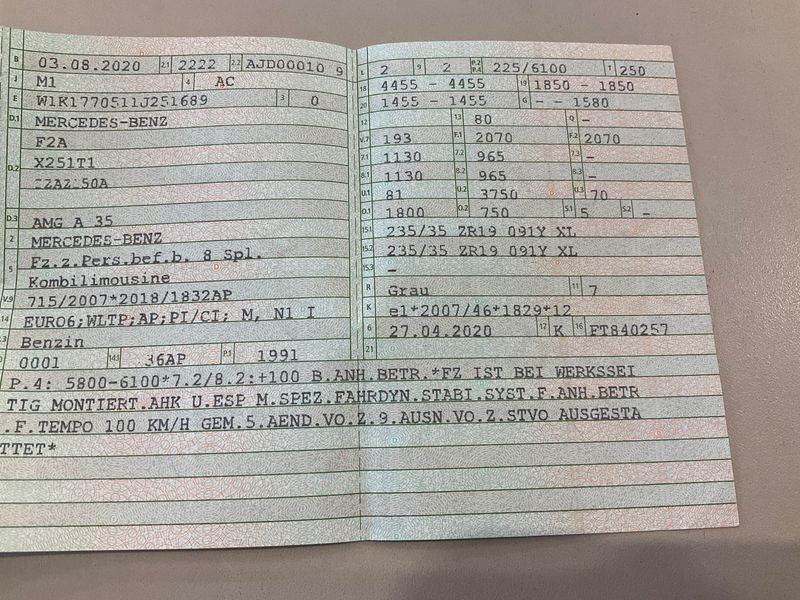 B 03.08.2020 2.1 2222 2.2 AJD00010 9
J M1 4 AC
E W1K1770511J251689 3 0
D.1 MERCEDES-BENZ
F2A
D.2 X251T1
D.3 AMG A 35
2 MERCEDES-BENZ
5 Fz.z.Pers.bef.b. 8 Spl.
Kombilimousine
V.9 715/2007*2018/1832AP
14 EURO6;WLTP;AP;PI/CI; M, N1 I
Benzin
0001 14.1 36AP P.1 1991
L 2 9 2 P.2 P.4 225/6100 T 250
18 4455 - 4455 19 1850 - 1850
20 1455 - 1455 G - - 1580
12 13 80 Q -
V.7 193 F.1 2070 F.2 2070
7.1 1130 7.2 965 7.3 -
8.1 1130 8.2 965 8.3 -
U.1 81 U.2 3750 U.3 70
O.1 1800 O.2 750 S.1 5 S.2 -
15.1 235/35 ZR19 091Y XL
15.2 235/35 ZR19 091Y XL
15.3 -
R Grau 11 7
K e1*2007/46*1829*12
6 27.04.2020 17 K 16 FT840257
21
P.4: 5800-6100*7.2/8.2:+100 B.ANH.BETR.*FZ IST BEI WERKSSEI
TIG MONTIERT.AHK U.ESP M.SPEZ.FAHRDYN.STABI.SYST.F.ANH.BETR
.F.TEMPO 100 KM/H GEM.5.AEND.VO.Z.9.AUSN.VO.Z.STVO AUSGESTA
TTET*